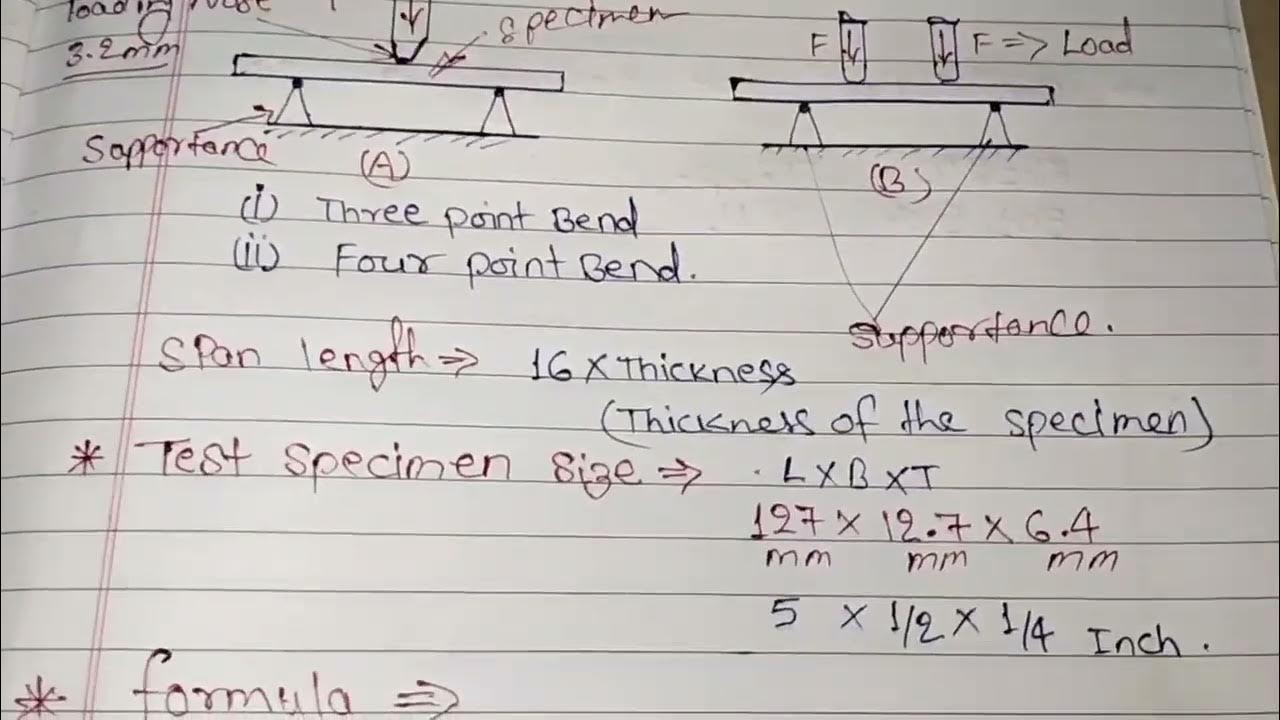 loading nose
3.2mm
specimen
F
F => Load
Sapportance
(A)
(B)
(i) Three point Bend
(ii) Four point Bend.
Supportance.
Span length => 16 x Thickness
(Thickness of the specimen)
* Test specimen size => . L x B x T
127 x 12.7 x 6.4
mm mm mm
5 x 1/2 x 1/4 Inch.
* formula =>